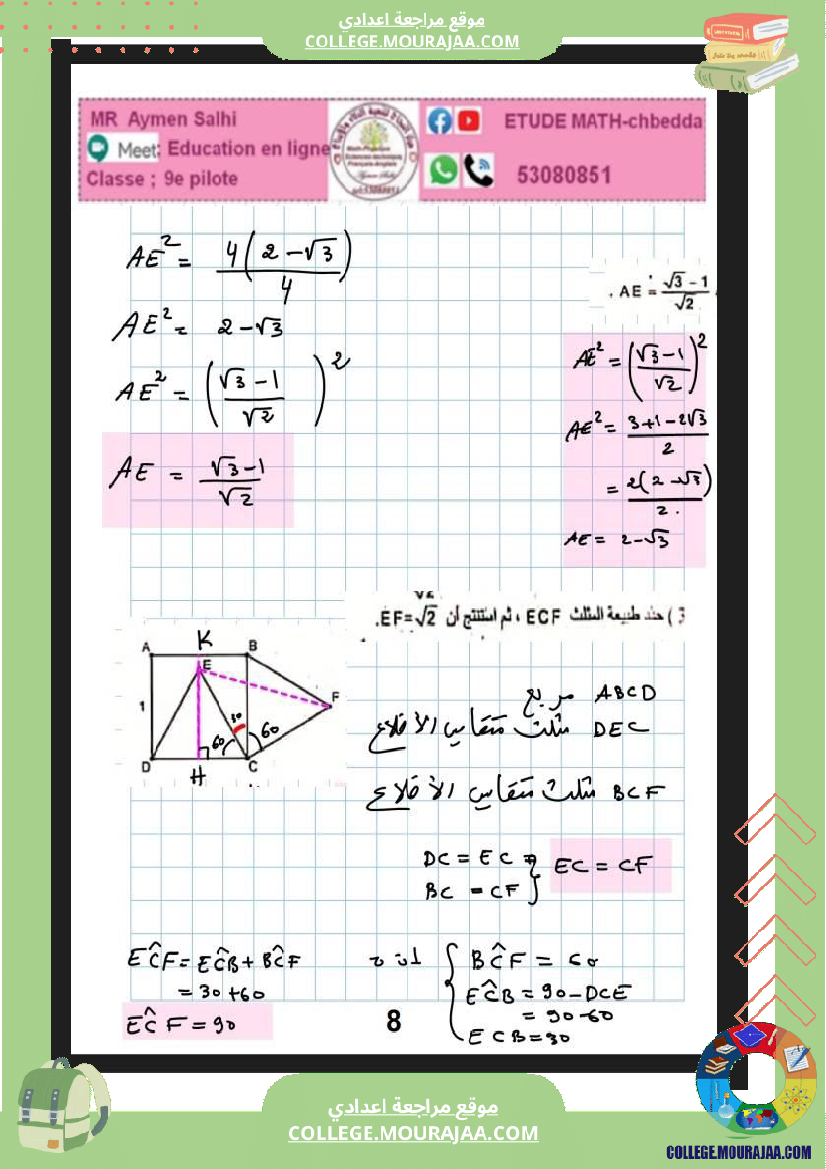 موقع مراجعة اعدادي
COLLEGE.MOURAJAA.COM
MR Aymen Salhi
Meet: Education en ligne
Classe ; 9e pilote
ETUDE MATH-chbedda
53080851
AE² = 4(2-√3)/4
AE² = 2-√3
AE² = ((√3-1)/√2)²
AE = (√3-1)/√2
. AE = (√3-1)/√2
AE² = ((√3-1)/√2)²
AE² = (3+1-2√3)/2
= 2(2-√3)/2.
AE = 2-√3
3 ) حدد طبيعة المثلث ECF ، ثم استنتج أن EF=√2.
A K B
E
F
1
30
60 60
D H C
ABCD مربع
DEC مثلث متقايس الأضلاع
BCF مثلث متقايس الأضلاع
DC = EC
BC = CF
EC = CF
BĈF = 60
EĈB = 90-DCE
= 90-60
ECB=30
EĈF = EĈB + BĈF
= 30+60
EĈF = 90
8
موقع مراجعة اعدادي
COLLEGE.MOURAJAA.COM
COLLEGE.MOURAJAA.COM